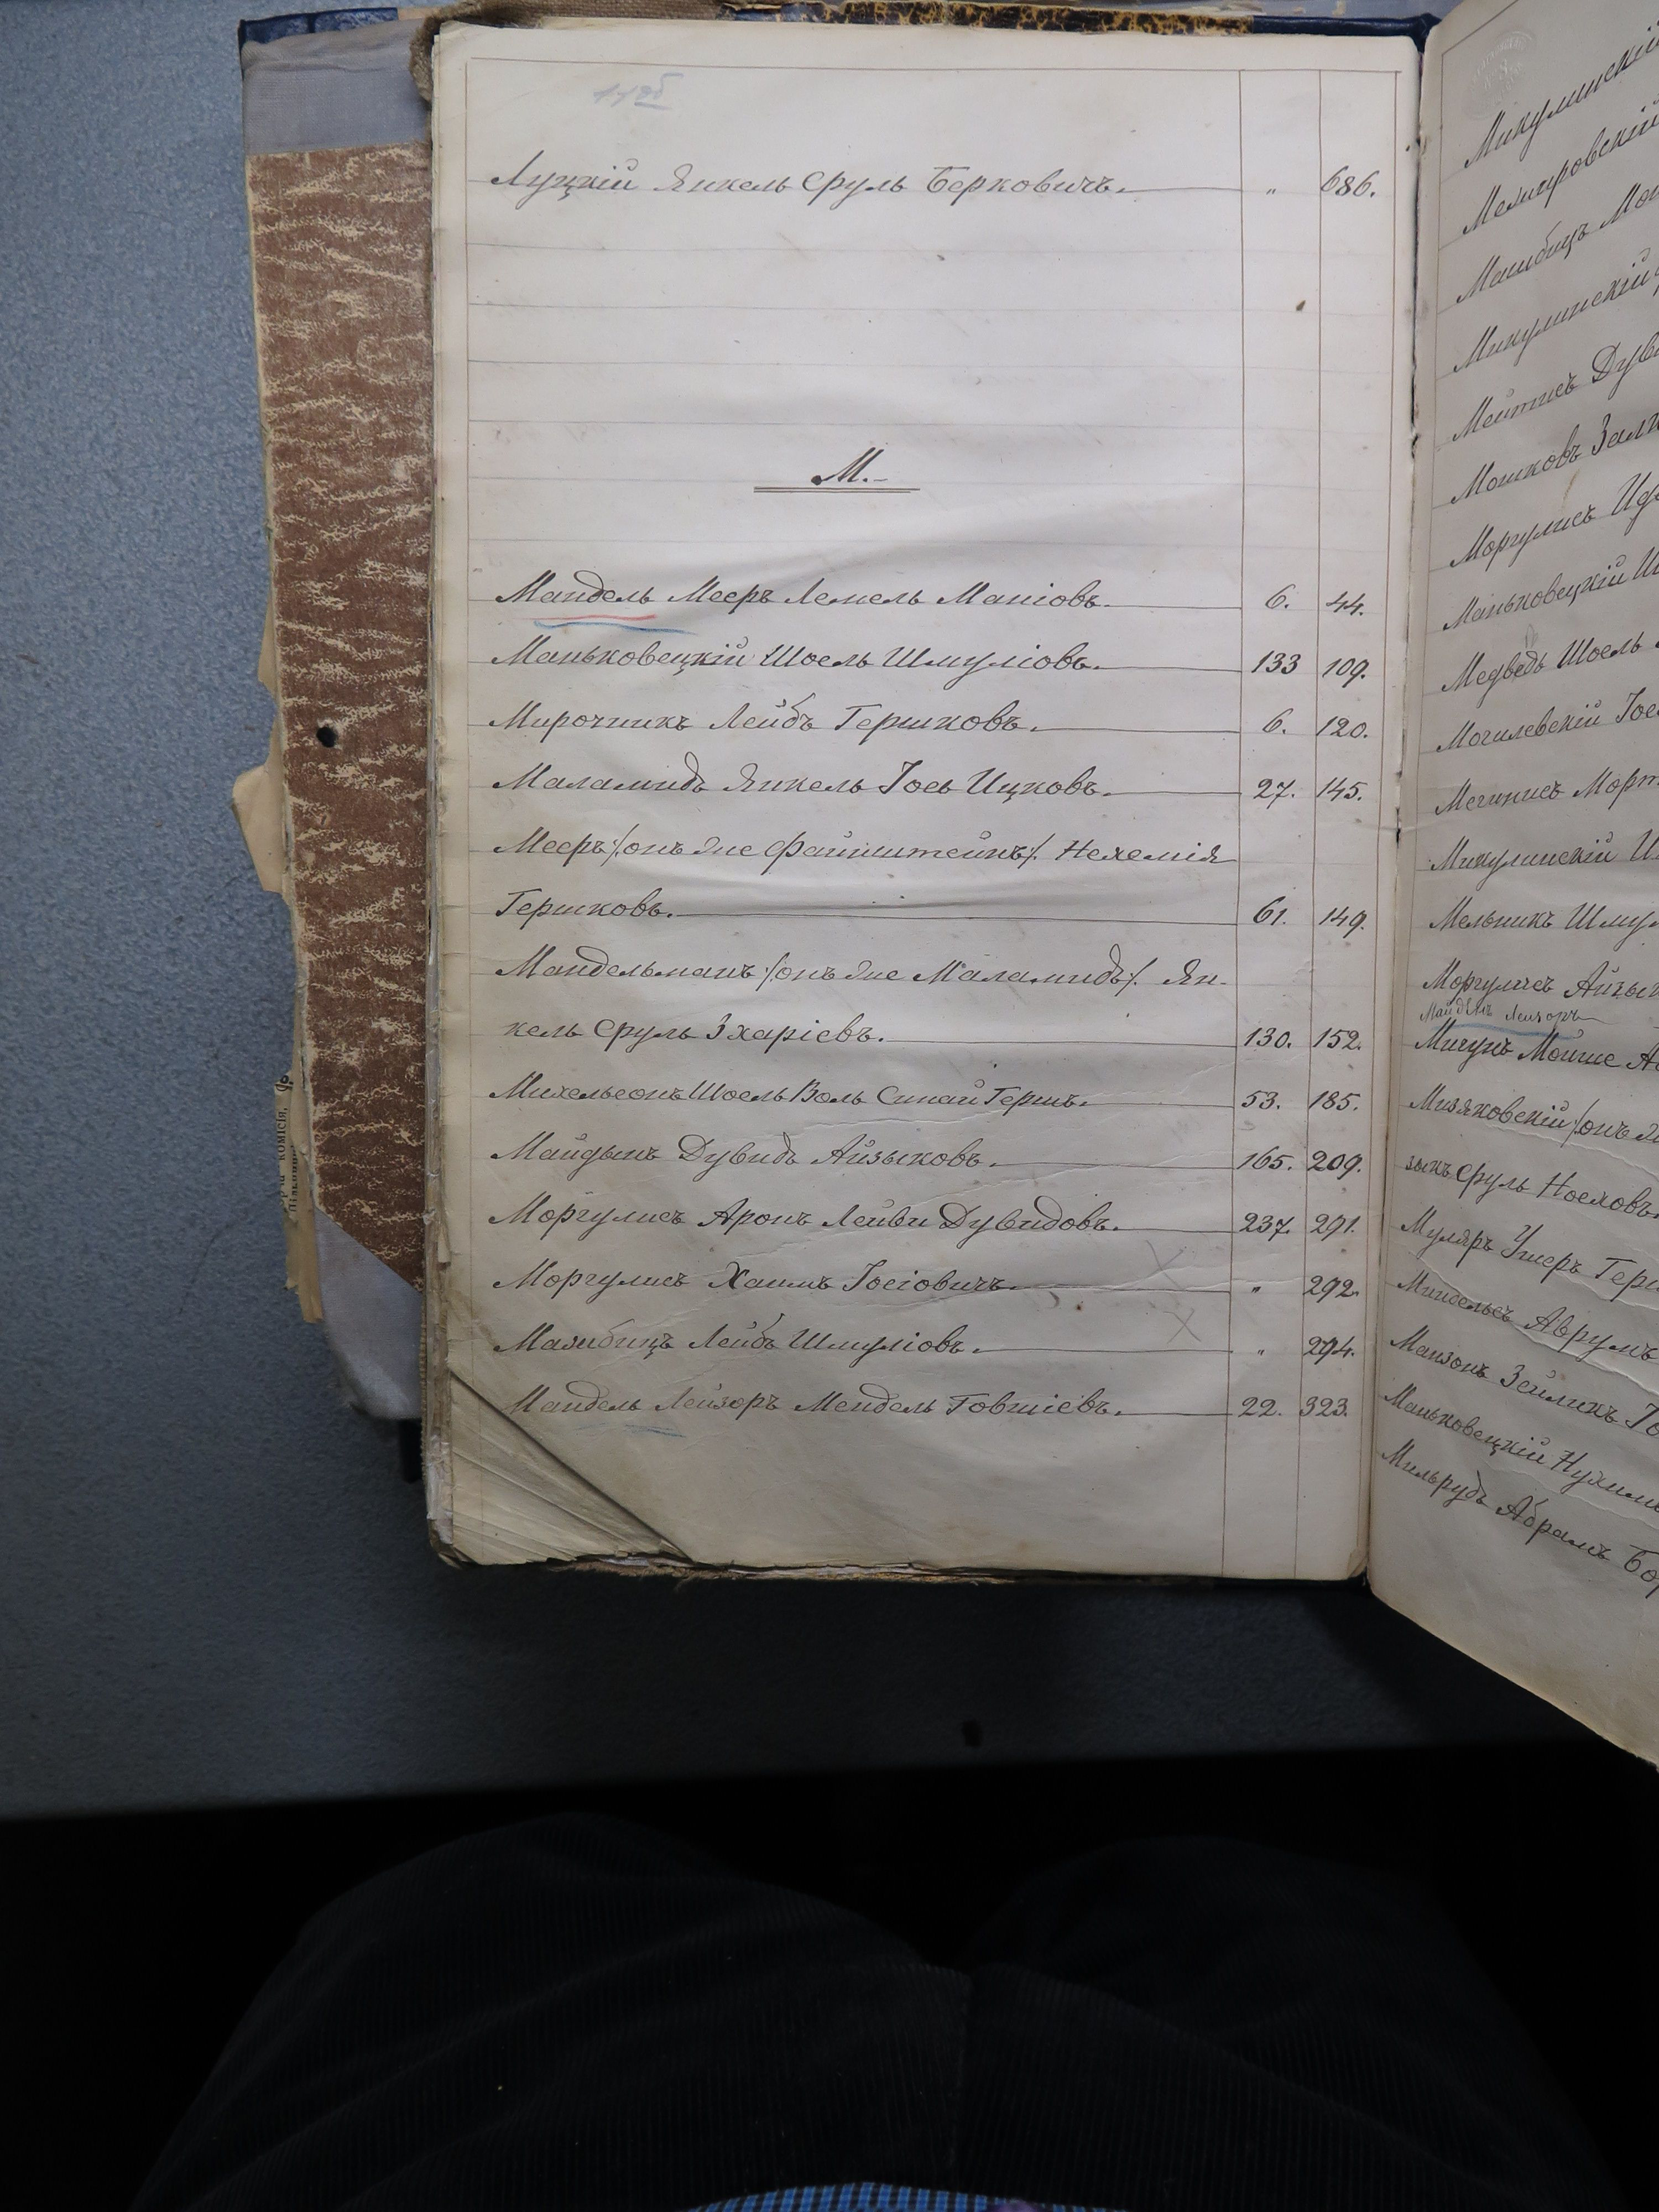 Луцкій Янкель Сруль Берковичъ. " 686.
М.
Мандель Мееръ Лемель Маніовъ. 6. 44.
Маньковецкій Шоель Шмуліовъ. 133 109.
Мирочникъ Лейбъ Гершковъ. 6. 120.
Маламидъ Янкель Іось Ицковъ. 27. 145.
Мееръ /онъ же Файнштейнъ/. Нехемія
Гершковъ. 61. 149.
Мандельманъ /онъ же Маламидъ/. Ян-
кель Сруль Зхаріевъ. 130. 152.
Михельсонъ Шоель Воль Синай Герш. 53. 185.
Майданъ Дувидъ Айзыковъ. 165. 209.
Моргулисъ Аронъ Лейви Дувидовъ. 237. 291.
Моргулисъ Хаимъ Іосіовичъ. " 292.
Мазибицъ Лейбъ Шмуліовъ. " 294.
Мандель Лейзоръ Мендель Говшіевъ. 22. 323.
Микулинскій
Межировскій
Микулинскій
Мейтисъ
Мошковъ
Моргулисъ
Маньковецкій
Медведь Шоель
Могилевскій
Мечникъ
Микулинскій
Мельникъ
Моргулисъ
Майданъ Лейзоръ
Мичунъ Мошше
Мизяковскій /онъ
зыкъ Сруль Носховъ
Муляръ Ушеръ
Миндельсъ Аврумъ
Манзонъ Зейликъ
Маньковецкій Нухимъ
Мильрудъ Абрамъ